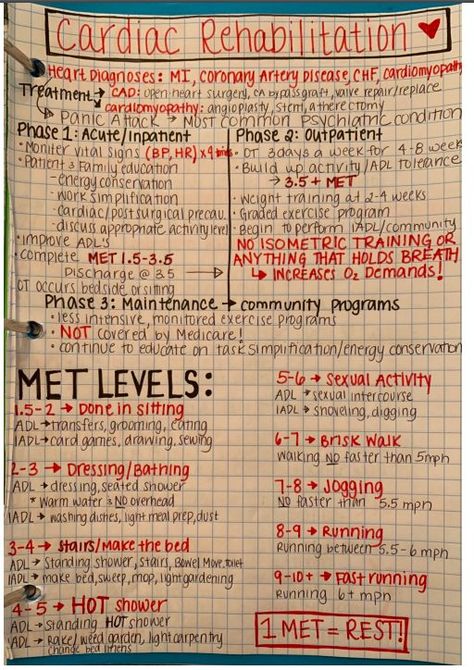 Cardiac Rehabilitation
Heart Diagnoses: MI, Coronary Artery Disease, CHF, cardiomyopathy
Treatment → CAD: open heart surgery, CA bypass graft, valve repair/replace
cardiomyopathy: angioplasty, stent, atherectomy
Panic Attack → Most common psychiatric condition
Phase 1: Acute/Inpatient
• Moniter vital signs (BP, HR) x 4 times
• Patient & Family education
- energy conservation
- work simplification
- cardiac/post surgical precau.
- discuss appropriate activity level
• improve ADL's
• complete MET 1.5-3.5
Discharge @ 3.5 →
OT occurs bedside or sitting
Phase 2: Outpatient
• OT 3 days a week for 4-8 weeks
• Build up activity/ADL tolerance
→ 3.5+ MET
• weight training at 2-4 weeks
• Graded exercise program
• Begin to perform IADL/community
NO ISOMETRIC TRAINING OR
ANYTHING THAT HOLDS BREATH
↳ INCREASES O2 Demands!
Phase 3: Maintenance → community programs
• less intensive, monitored exercise programs
• NOT covered by Medicare!
• continue to educate on task simplification/energy conservation
MET LEVELS:
1.5-2 → Done in sitting
ADL → transfers, grooming, eating
IADL → card games, drawing, sewing
2-3 → Dressing/Bathing
ADL → dressing, seated shower
* warm water & NO overhead
IADL → washing dishes, light meal prep, dust
3-4 → Stairs/Make the bed
ADL → Standing shower, stairs, Bowel Move, toilet
IADL → make bed, sweep, mop, light gardening
4-5 → HOT shower
ADL → Standing HOT shower
IADL → Rake/weed garden, light carpentry
change bed linens
5-6 → Sexual Activity
ADL → sexual intercourse
IADL → shoveling, digging
6-7 → Brisk Walk
Walking NO faster than 5mph
7-8 → Jogging
NO faster than 5.5 mph
8-9 → Running
Running between 5.5-6 mph
9-10+ → Fast running
Running 6+ mph
1 MET = REST!